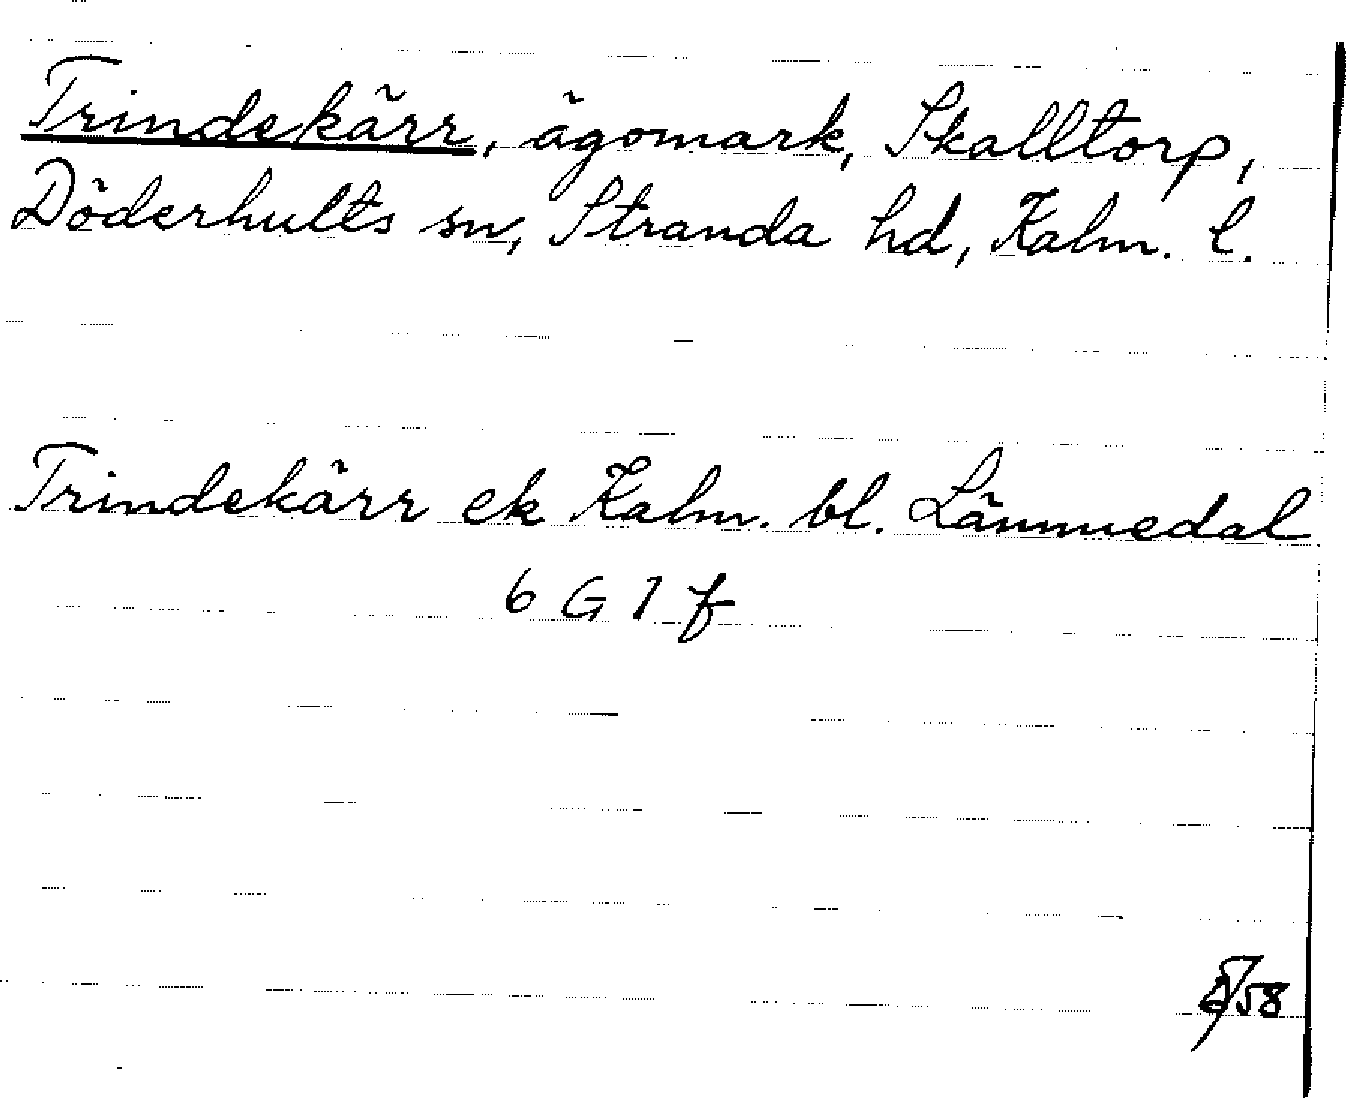 Trindekärr, ägomark, Skalltorp,
Döderhults sn, Stranda hd, Kalm. l.
Trindekärr ek Kalm. bl. Lämmedal
6 G 1 f